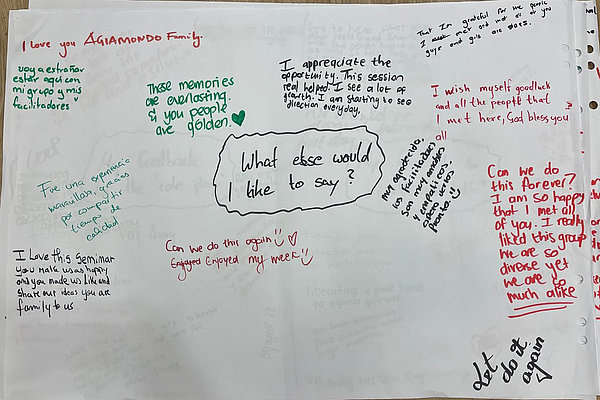 I love you AGIAMONDO Family.
voy a extrañar
estar aqui con
mi grupo y mis
facilitadores
These memories
are everlasting.
& you people
are golden
I appreciate the
opportunity. This session
real helped. I see a lot of
growth. I am starting to see
direction everyday.
That I'm grateful for the people
guys and gils are
I wish myself goodluck
and all the people that
I met here, God bless you
all
What else would
I like to say?
muy agradecida,
los facilitadores
son muy amables
y empaticos.
espero verlos
pronto
Can we do
this forever?
I am so happy
that I met all
of you. I really
liked this group
we are so
diverse yet
we are so
much alike
Fue una experiencia
maravillosa, gracias
por compartir
tiempo de
calidad
Can we do this again
Enjoyed Enjoyed my week
I Love this Seminar
you make us as happy
and you made us like and
share our ideas you are
family to us
Let
do it
again